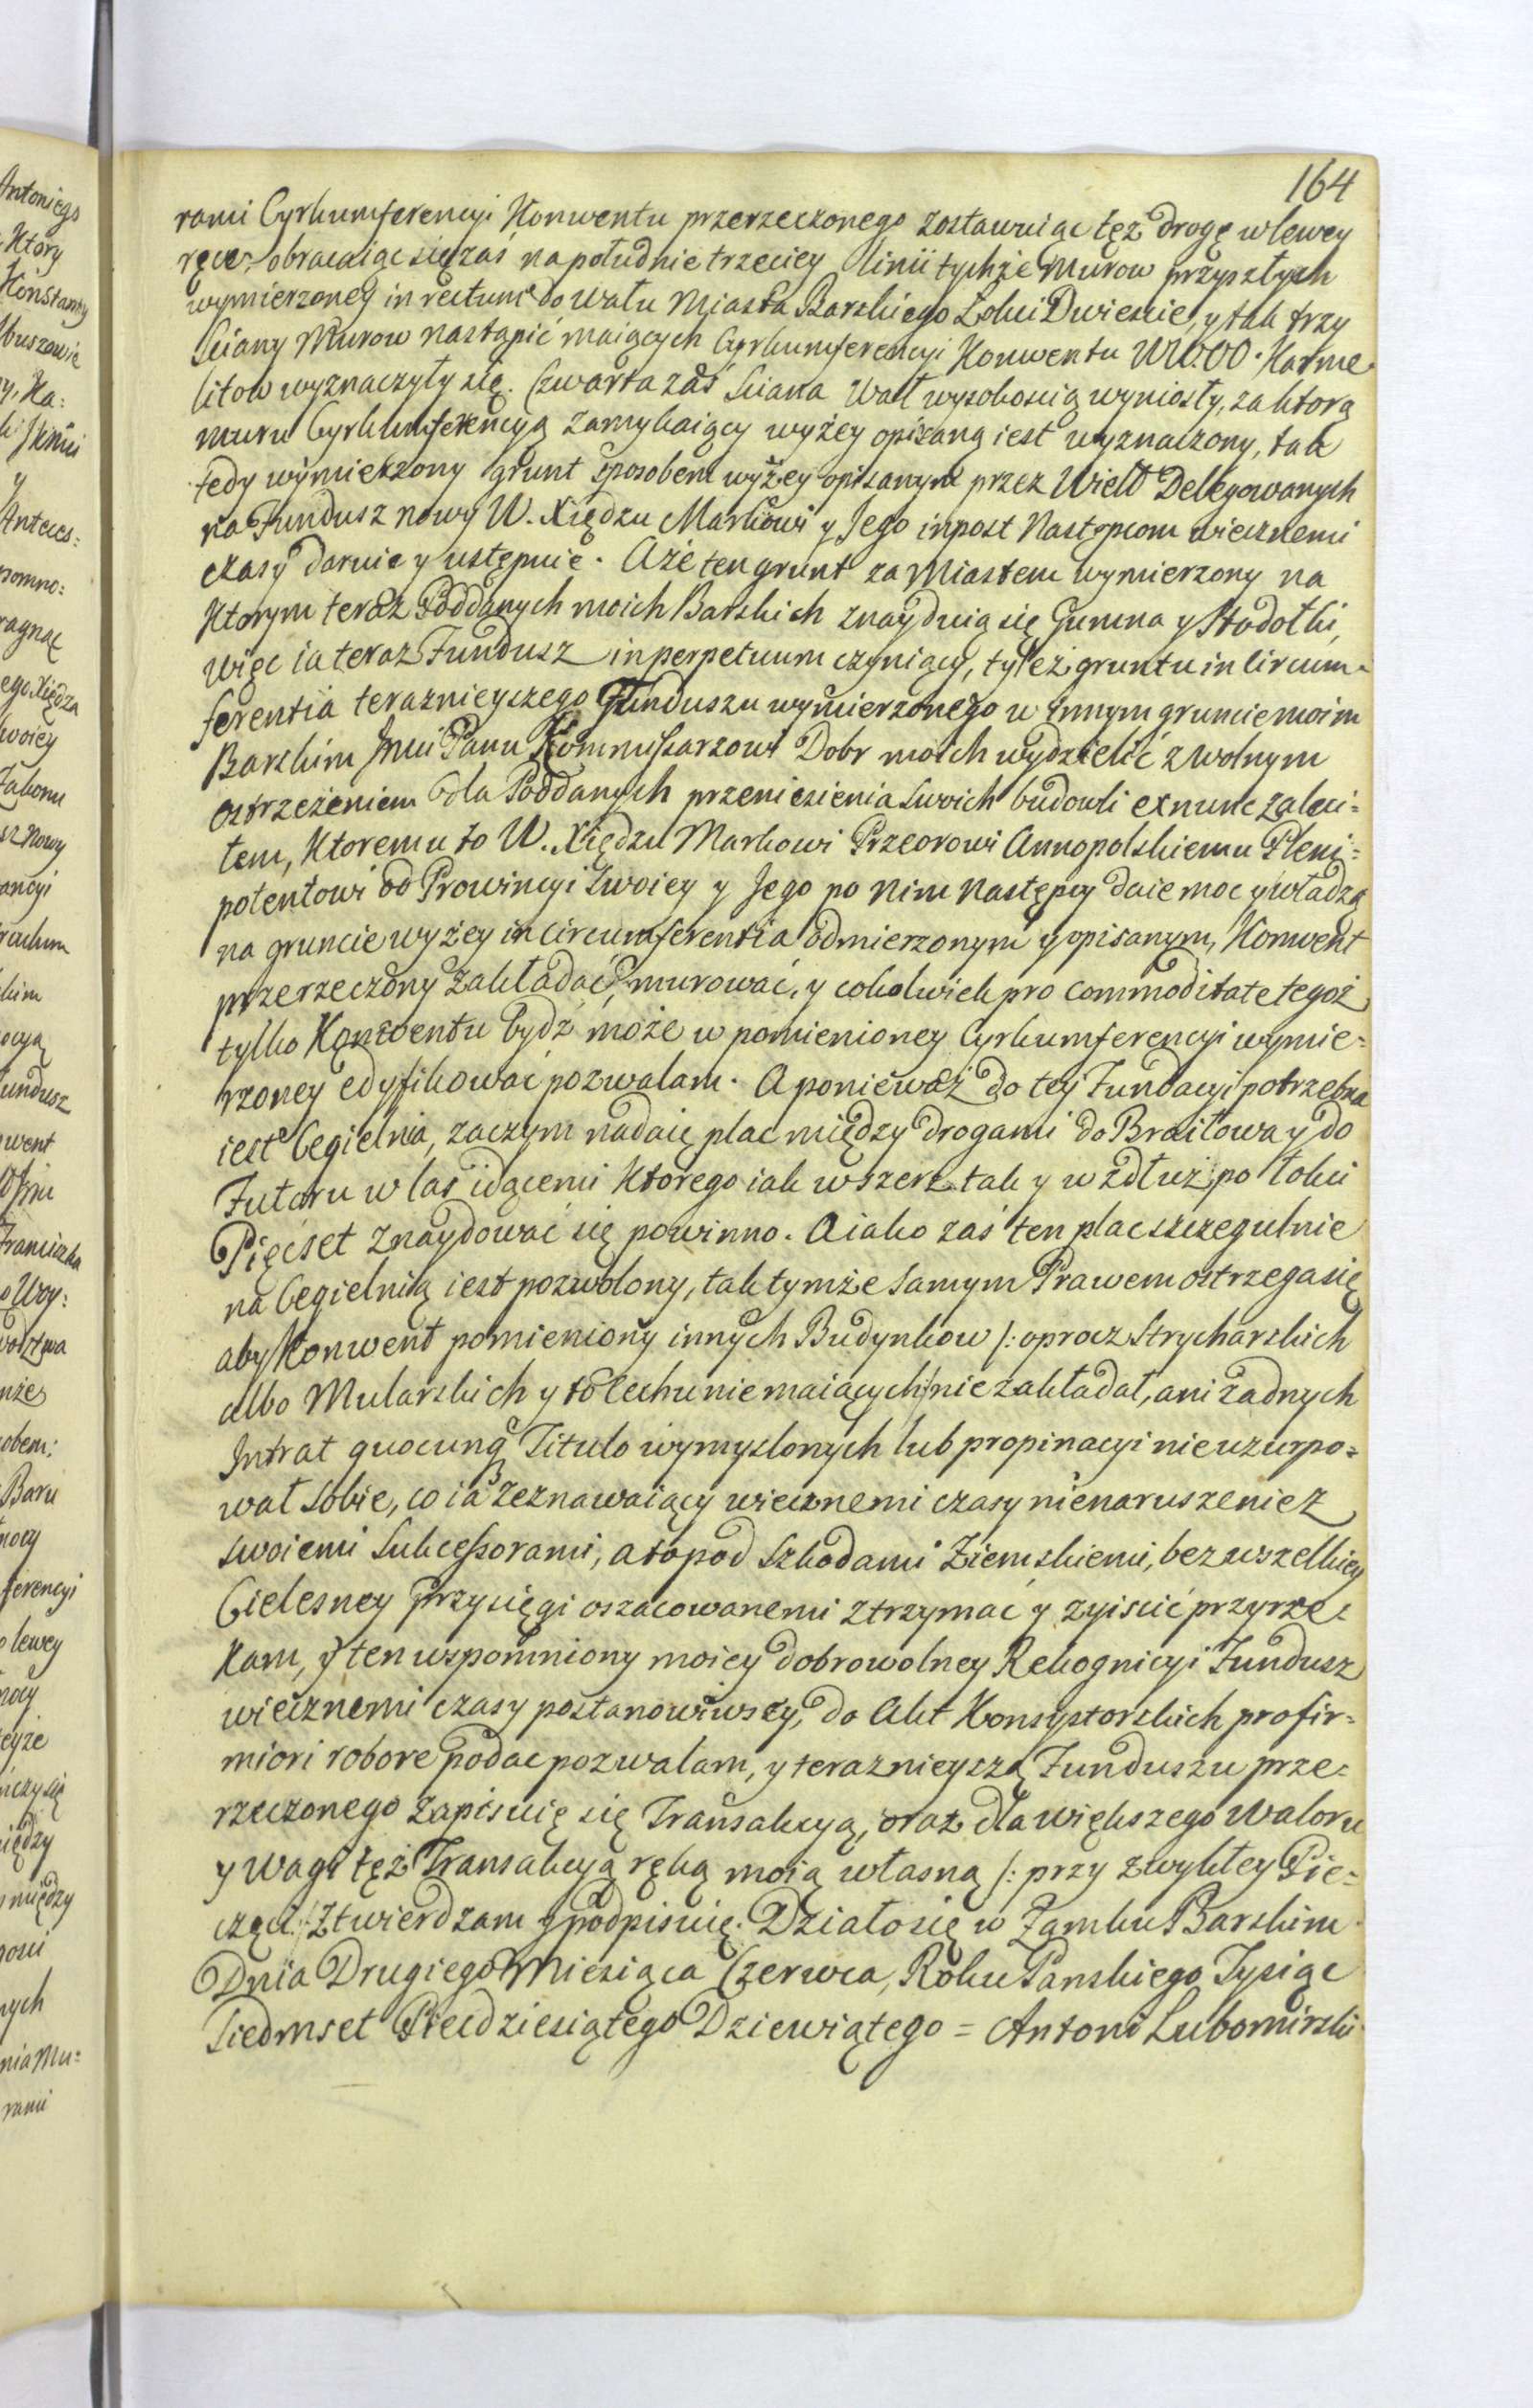 164
rami Cyrkumferencyi Konwentu przerzeczonego zostawuiąc tęż drogę w lewey
ręce, obracaiąc się zaś na południe trzeciey linii tychże Murow przyszłych
wymierzoney in rectum do wału Miasta Barskiego Łokci Dwieście, y tak trzy
Sciany Murow nastąpić maiących Cyrkumferencyi Konwentu WW.OO. Karme-
litow wyznaczyły się. Czwarta zaś Sciana Wał wysokoscią wyniosły, za ktorą
muru Cyrkumferencyą zamykaiący wyżey opisaną iest wyznaczony, tak
tedy wymierzony grunt sposobem wyżey opisanym przez Wielo Delegowanych
na Fundusz nowy W. Xiędzu Markowi y Jego inpost Następcom wiecznemi
czasy daruie y ustępuie. Aże ten grunt za Miastem wymierzony na
Ktorym teraz Poddanych moich Barskich znayduią się Gumna y Stodołki,
więc ia teraz Fundusz in perpetuum czyniący, tyleż gruntu in circum-
ferentia teraznieyszego Funduszu wymierzonego w innym gruncie moim
Barskim Jmci Panu Kommissarzowi Dobr moich wydzielić z wolnym
ostrzeżeniem dla Poddanych przeniesienia swoich budowli ex nunc zaleci-
łem, Ktoremu to W. Xiędzu Markowi Przeorowi Annopolskiemu Pleni-
potentowi od Prowincyi Swoiey y Jego po nim Następcy daie moc y władzą
na gruncie wyżey in circumferentia odmierzonym y opisanym, Konwent
przerzeczony zakładać, murować, y cokolwiek pro commoditate tegoż
tylko Konwentu bydź może w pomienioney Cyrkumferencyi wymie-
rzoney edyfikować pozwalam. A ponieważ do tey Fundacyi potrzebna
iest Cegielnia, zaczym nadaię plac między drogami do Braiłowa y do
Futoru w las idącemi Ktorego iak wszerz tak y wzdłuż po łokci
Pięćset znaydować się powinno. A iako zaś ten plac szczegulnie
na Cegielnią iest pozwolony, tak tymże samym Prawem ostrzega się
aby Konwent pomieniony innych Budynkow /: oprocz Strycharskich
albo Mularskich y to Cechu nie maiących :/ nie zakładał, ani żadnych
Intrat quocunq Titulo wymyslonych lub propinacyi nie uzurpo-
wał sobie, co ia zeznawaiący wiecznemi czasy nienaruszenie z
swoiemi Sukcessorami, a to pod Szkodami Ziemskiemi, bez wszelkiey
Cielesney przysięgi oszacowanemi ztrzymać y zyiscić przyrze-
kam, y ten wspomniony moiey dobrowolney Rekognicyi Fundusz
wiecznemi czasy postanowiwszy, do Akt Konsystorskich pro fir-
miori robore podac pozwalam, y teraznieyszą Funduszu prze-
rzeczonego zapisuię się Transakcyą, oraz dla większego waloru
y wagi tęż Transakcyą ręką moią własną /: przy zwykłey Pie-
częci :/ Ztwierdzam y podpisuię. Działo się w Zamku Barskim
Dnia Drugiego Miesiąca Czerwca, Roku Panskiego Tysiąc
Siedmset Piećdziesiątego Dziewiątego = Antoni Lubomirski